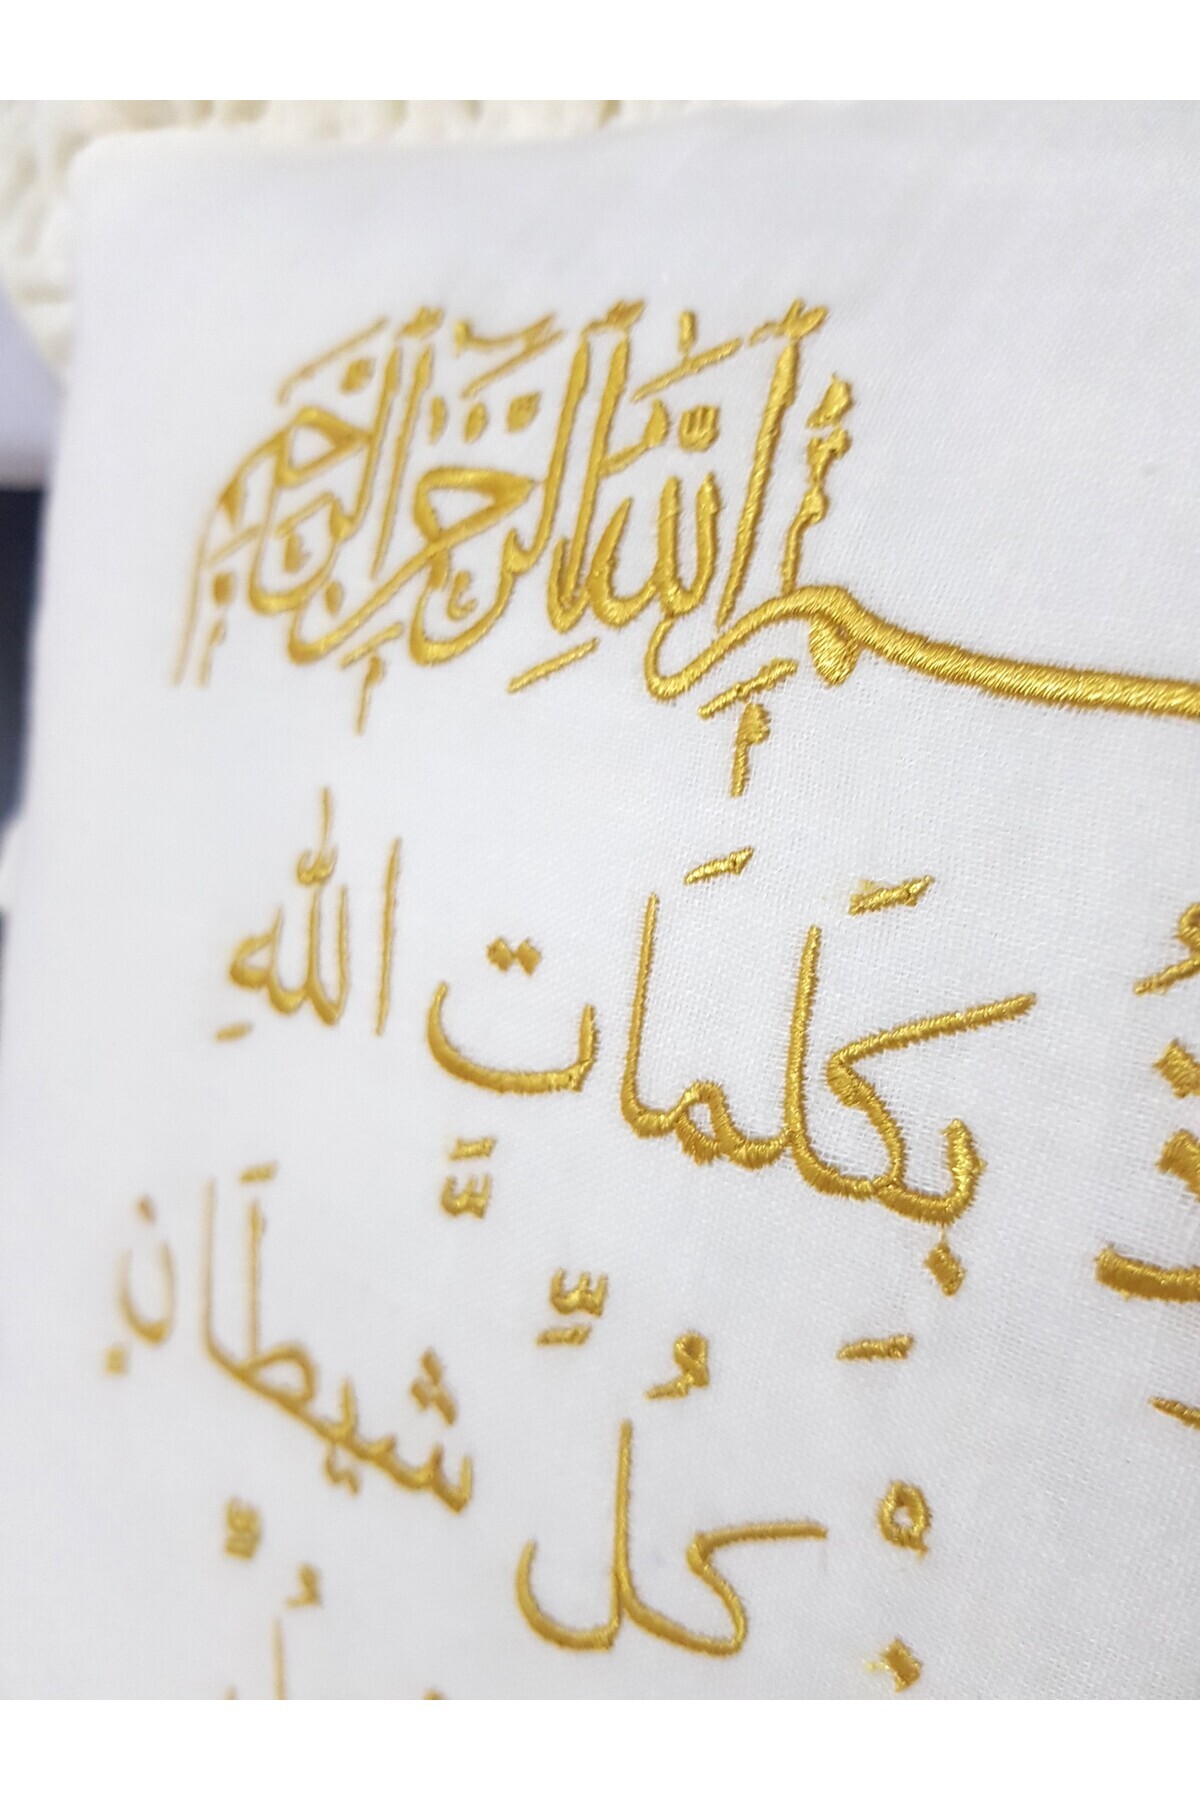 بسم الله الرحمن الرحيم
بِكَلَمَاتِ اللهِ
كُلِّ شَيطَانٍ